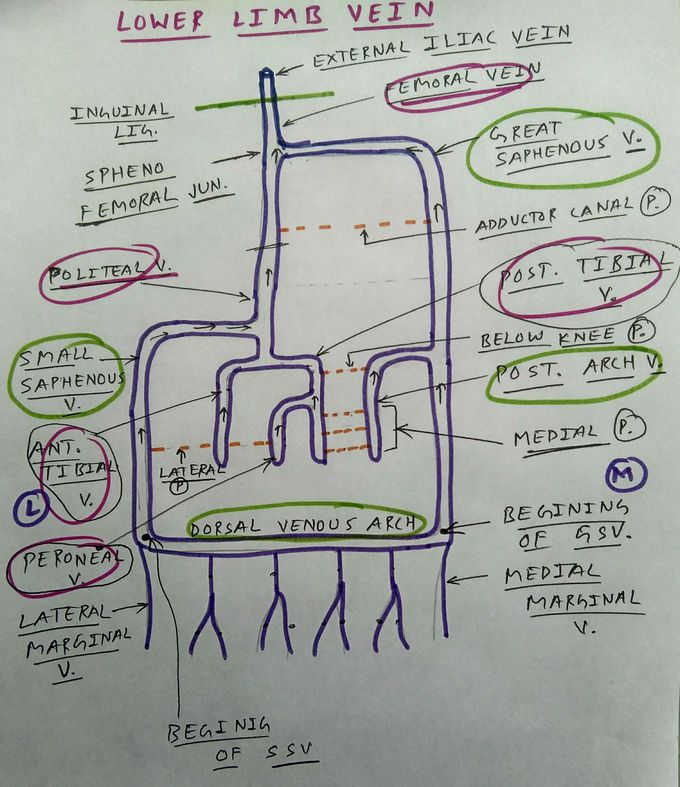 LOWER LIMB VEIN
EXTERNAL ILIAC VEIN
FEMORAL VEIN
INGUINAL
LIG.
GREAT
SAPHENOUS V.
SPHENO
FEMORAL JUN.
ADDUCTOR CANAL P.
POLITEAL V.
POST. TIBIAL
V.
BELOW KNEE P.
SMALL
SAPHENOUS
V.
POST. ARCH V.
ANT.
TIBIAL
V.
LATERAL
P
MEDIAL P.
L
M
DORSAL VENOUS ARCH
BEGINING
OF GSV.
PERONEAL
V.
MEDIAL
MARGINAL
V.
LATERAL
MARGINAL
V.
BEGINIG
OF SSV